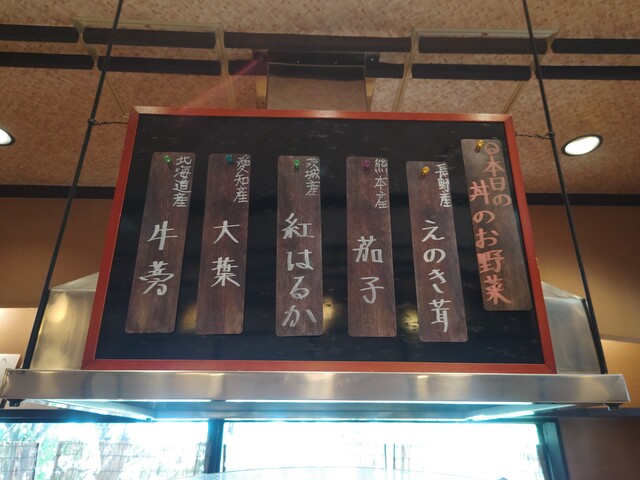 ◎本日の
丼のお野菜
長野産
えのき茸
熊本産
茄子
茨城産
紅はるか
愛知産
大葉
北海道産
牛蒡